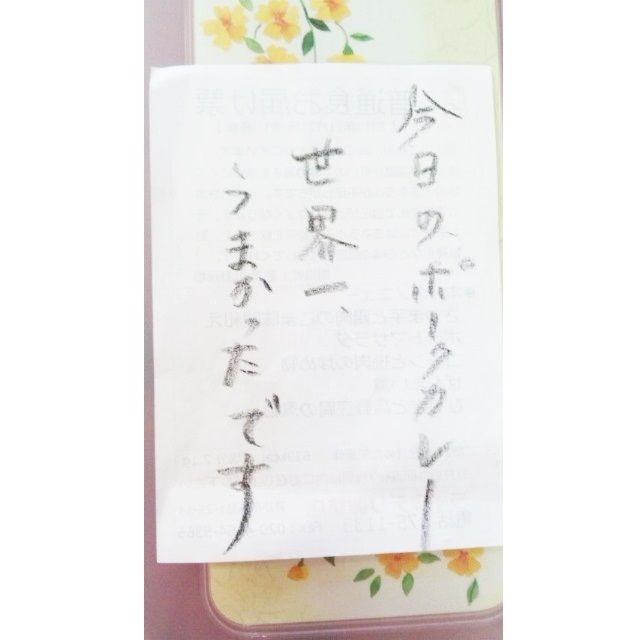 今日のポークカレー
世界一、
うまかったです